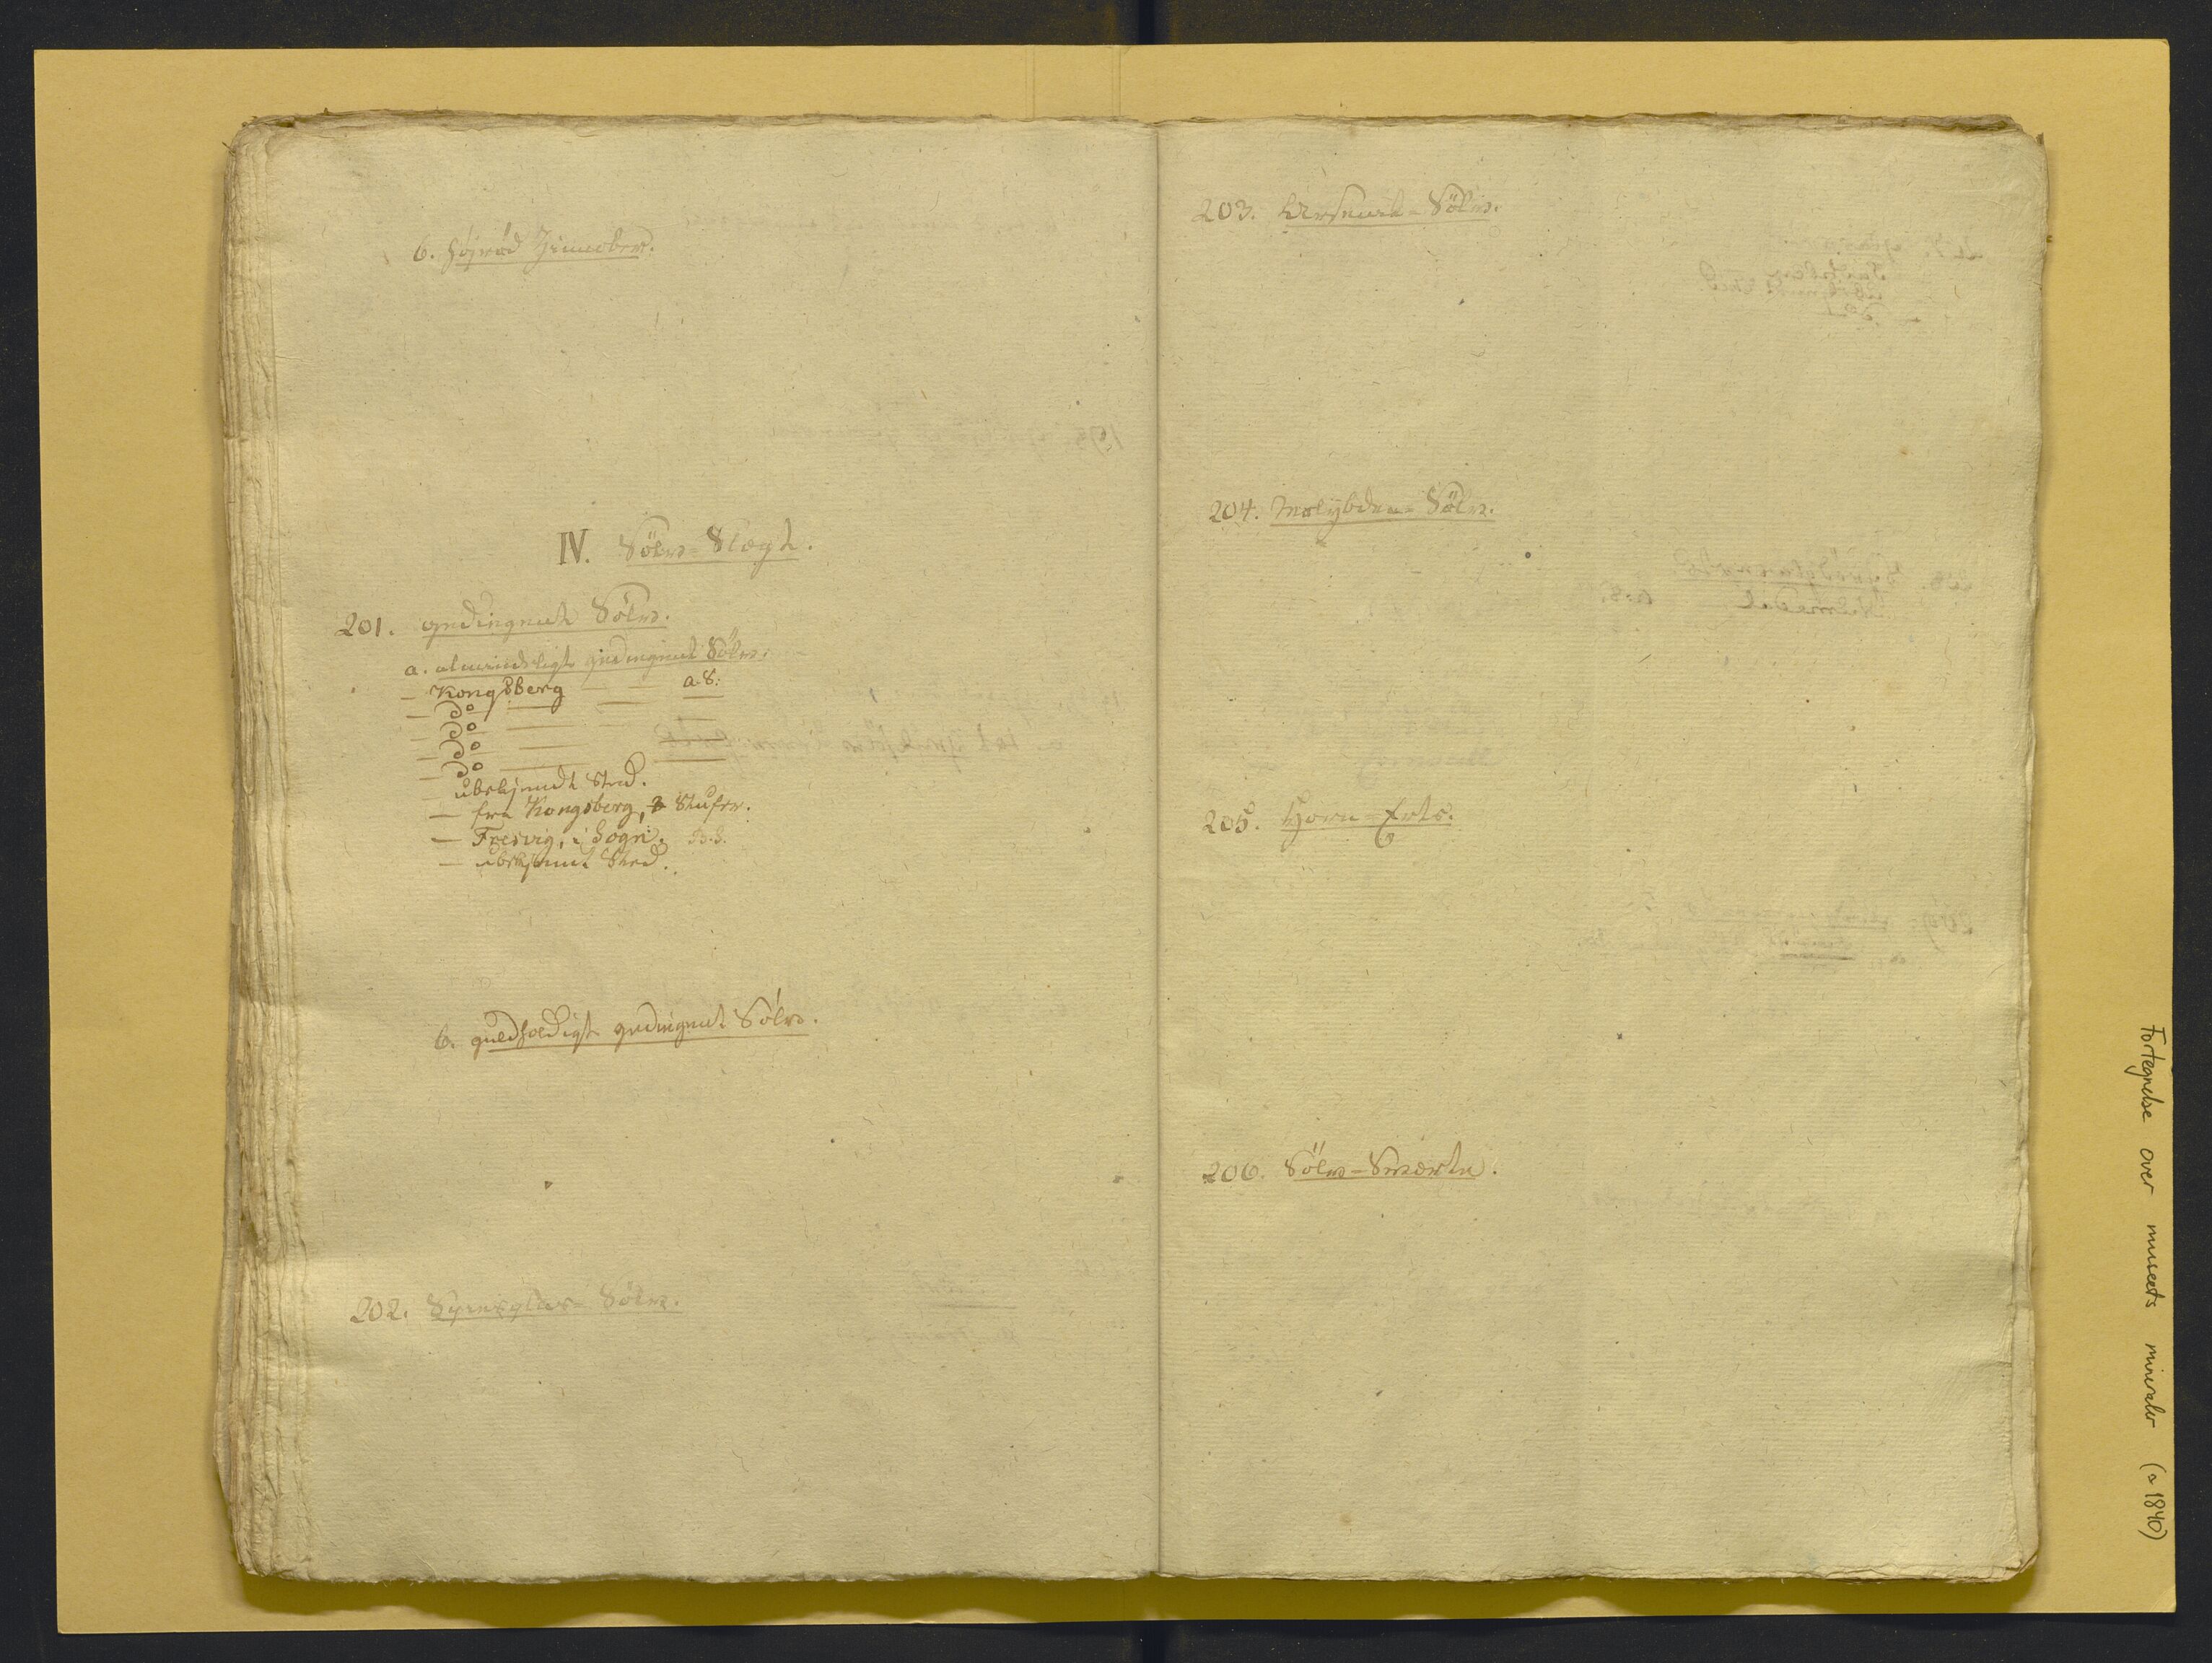 b. højrød Zinnober.
IV. Sölv-Slægt.
201. gedingent Sölv.
a. almindeligt gedingent Sölv.
— Kongsberg — — a. S.
— Do — — —
— Do — —
— Do —
— Do —
— ubekjendt Sted.
— fra Kongsberg, 2 Stufer.
— Fresvig, i Sogn. B.S.
— ubekjent Sted.
b. guldholdigt gedingent Sölv.
202. Spiesglas-Sölv.
203. Arsenik-Sölv.
204. Molybden-Sölv.
205. Horn-Erts.
206. Sölv-Sværte.
Fortegnelse over museets mineraler (ca 1840)